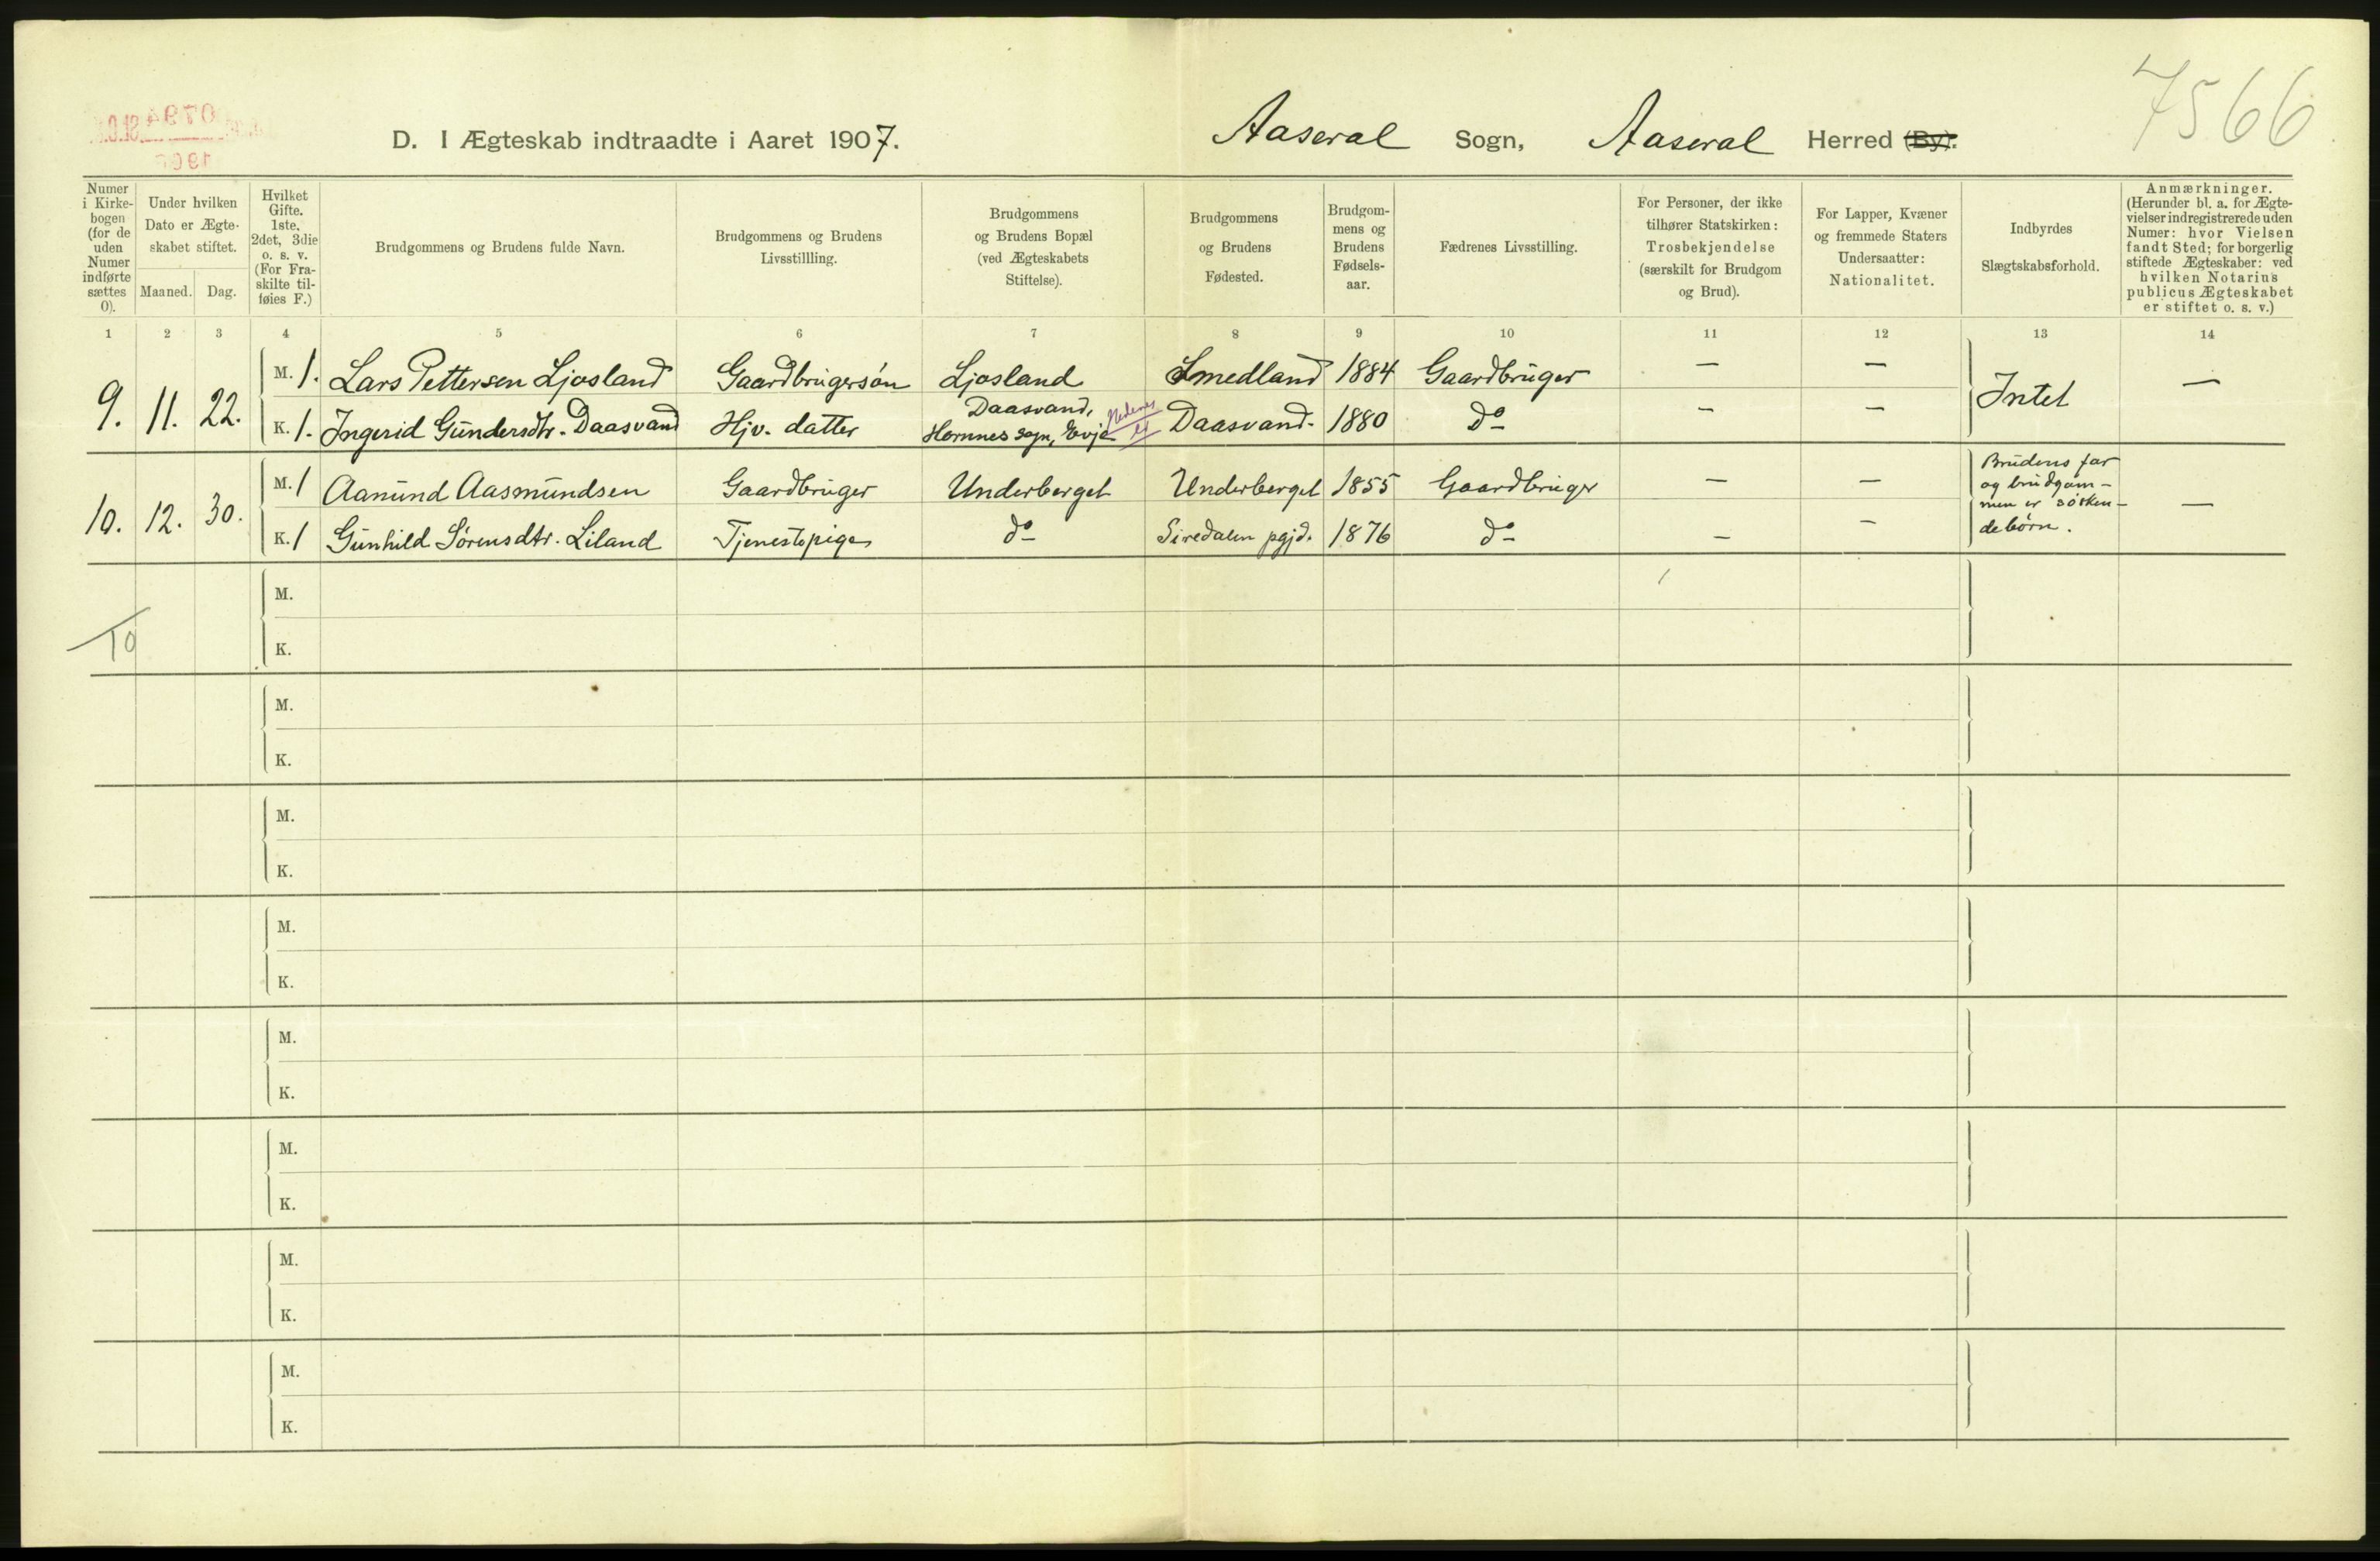 7566
D. I Ægteskab indtraadte i Aaret 1907. Aaseral Sogn, Aaseral Herred (By).
Numer
i Kirke-
bogen
(for de
uden
Numer
indførte
sættes
0).
Under hvilken
Dato er Ægte-
skabet stiftet.
Maaned. Dag.
Hvilket
Gifte.
1ste,
2det, 3die
o. s. v.
(For Fra-
skilte til-
føies F.)
Brudgommens og Brudens fulde Navn.
Brudgommens og Brudens
Livsstillling.
Brudgommens
og Brudens Bopæl
(ved Ægteskabets
Stiftelse).
Brudgommens
og Brudens
Fødested.
Brudgom-
mens og
Brudens
Fødsels-
aar.
Fædrenes Livsstilling.
For Personer, der ikke
tilhører Statskirken:
Trosbekjendelse
(særskilt for Brudgom
og Brud).
For Lapper, Kvæner
og fremmede Staters
Undersaatter:
Nationalitet.
Indbyrdes
Slægtskabsforhold.
Anmærkninger.
(Herunder bl. a. for Ægte-
vielser indregistrerede uden
Numer: hvor Vielsen
fandt Sted; for borgerlig
stiftede Ægteskaber: ved
hvilken Notarius
publicus Ægteskabet
er stiftet o. s. v.)
1 2 3 4 5 6 7 8 9 10 11 12 13 14
9. 11. 22.
M. 1. Lars Pettersen Ljosland Gaardbrugersøn Ljosland Smedland 1884 Gaardbruger — — Intet —
K. 1. Ingerid Gundersdtr. Daasvand Hjv. datter Daasvand,
Hornnes sogn, Evje Nedenes Daasvand. 1880 do — —
10. 12. 30.
M. 1 Aanund Aasmundsen Gaardbruger Underberget Underberget 1855 Gaardbruger — — —
K. 1 Gunhild Sørensdtr. Liland Tjenestepige do Siredalen pgjd. 1876 do — —
Brudens far
og brudgom-
men er søsken-
debørn.
10
M.
K.
M.
K.
M.
K.
M.
K.
M.
K.
M.
K.
M.
K.
M.
K.